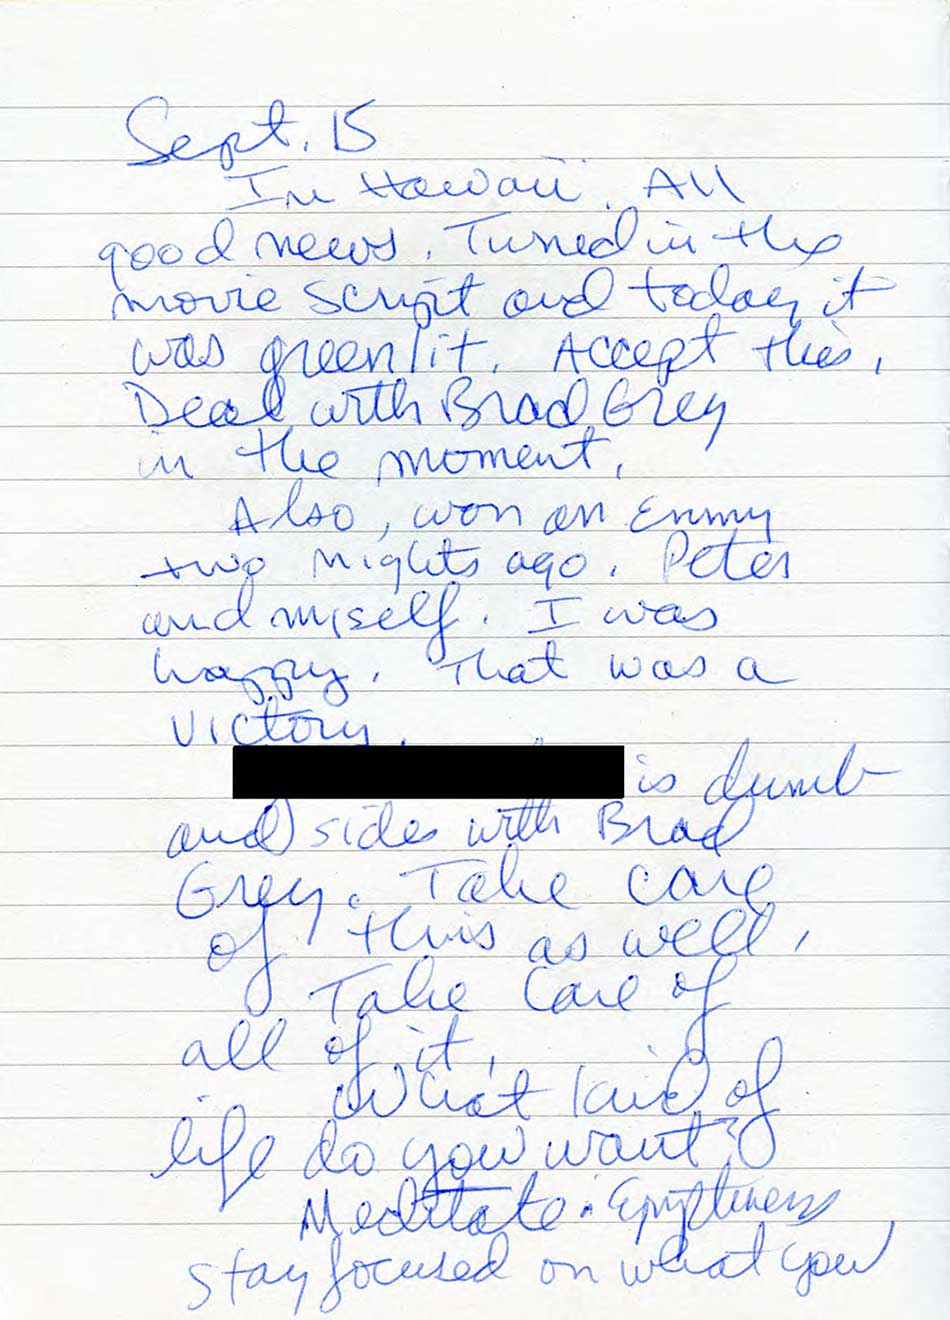 Sept. 15
In Hawaii. All
good news. Turned in the
movie script and today it
was greenlit. Accept this.
Deal with Brad Grey
in the moment.
Also, won an Emmy
two nights ago. Peter
and myself. I was
happy. That was a
victory.
is dumb
and sides with Brad
Grey. Take care
of this as well.
Take care of
all of it.
What kind of
life do you want?
Meditate. Emptiness
stay focused on what you